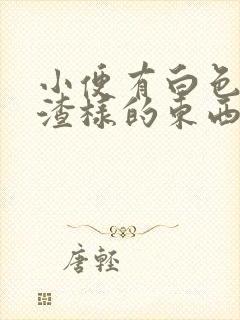 小便有白色
渣样的东西
唐轻